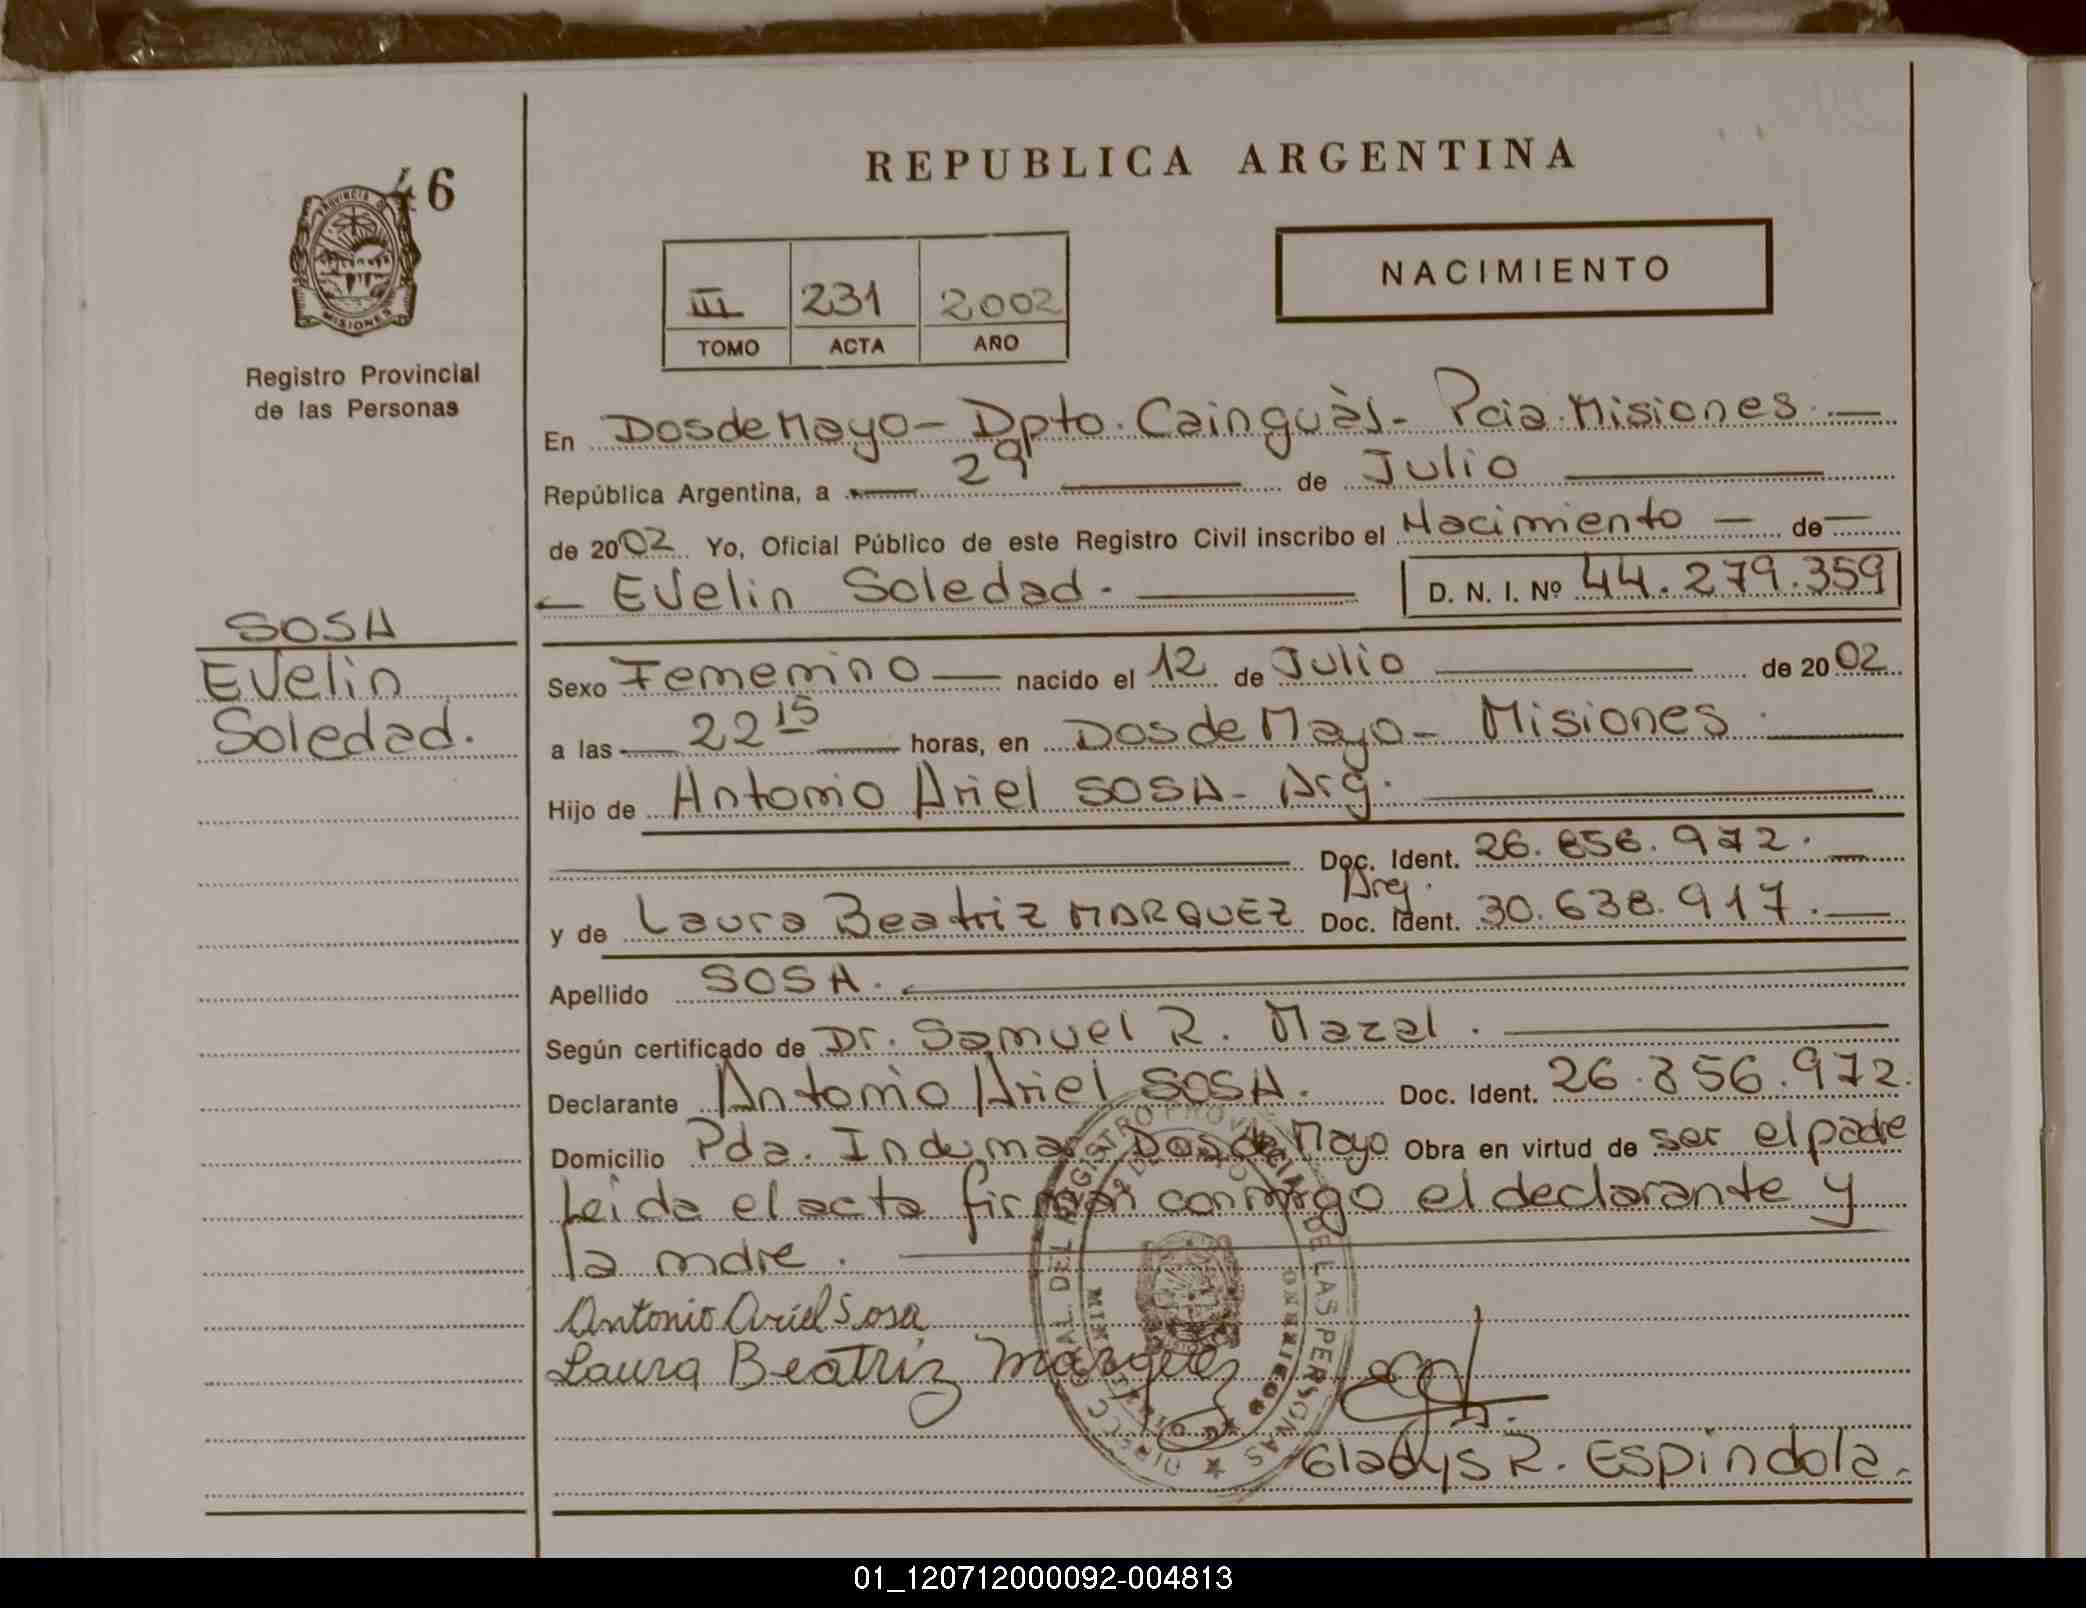 REPUBLICA ARGENTINA
46
PROVINCIA DE
MISIONES
Registro Provincial
de las Personas
NACIMIENTO
III 231 2002
TOMO ACTA AÑO
En Dos de Mayo - Dpto. Cainguàs - Pcia. Misiones
República Argentina, a 29 de Julio
de 2002 Yo, Oficial Público de este Registro Civil inscribo el Nacimiento de
Evelin Soledad. D. N. I. Nº 44.279.359
SOSA
Evelin
Soledad.
Sexo Femenino nacido el 12 de Julio de 2002
a las 22 15 horas, en Dos de Mayo - Misiones
Hijo de Antonio Ariel SOSA - Arg.
Doc. Ident. 26.856.972.
Arg.
y de Laura Beatriz MARQUEZ Doc. Ident. 30.638.917.
Apellido SOSA.
Según certificado de Dr. Samuel R. Mazal.
Declarante Antonio Ariel SOSA. Doc. Ident. 26.856.972.
Domicilio Pda. Indumar Dos de Mayo Obra en virtud de ser el padre
Leida el acta firman conmigo el declarante y
la mdre.
Antonio Ariel Sosa
Laura Beatriz Marquez
REGISTRO PROVINCIAL DE LAS PERSONAS
Gladys R. Espindola.
01_120712000092-004813